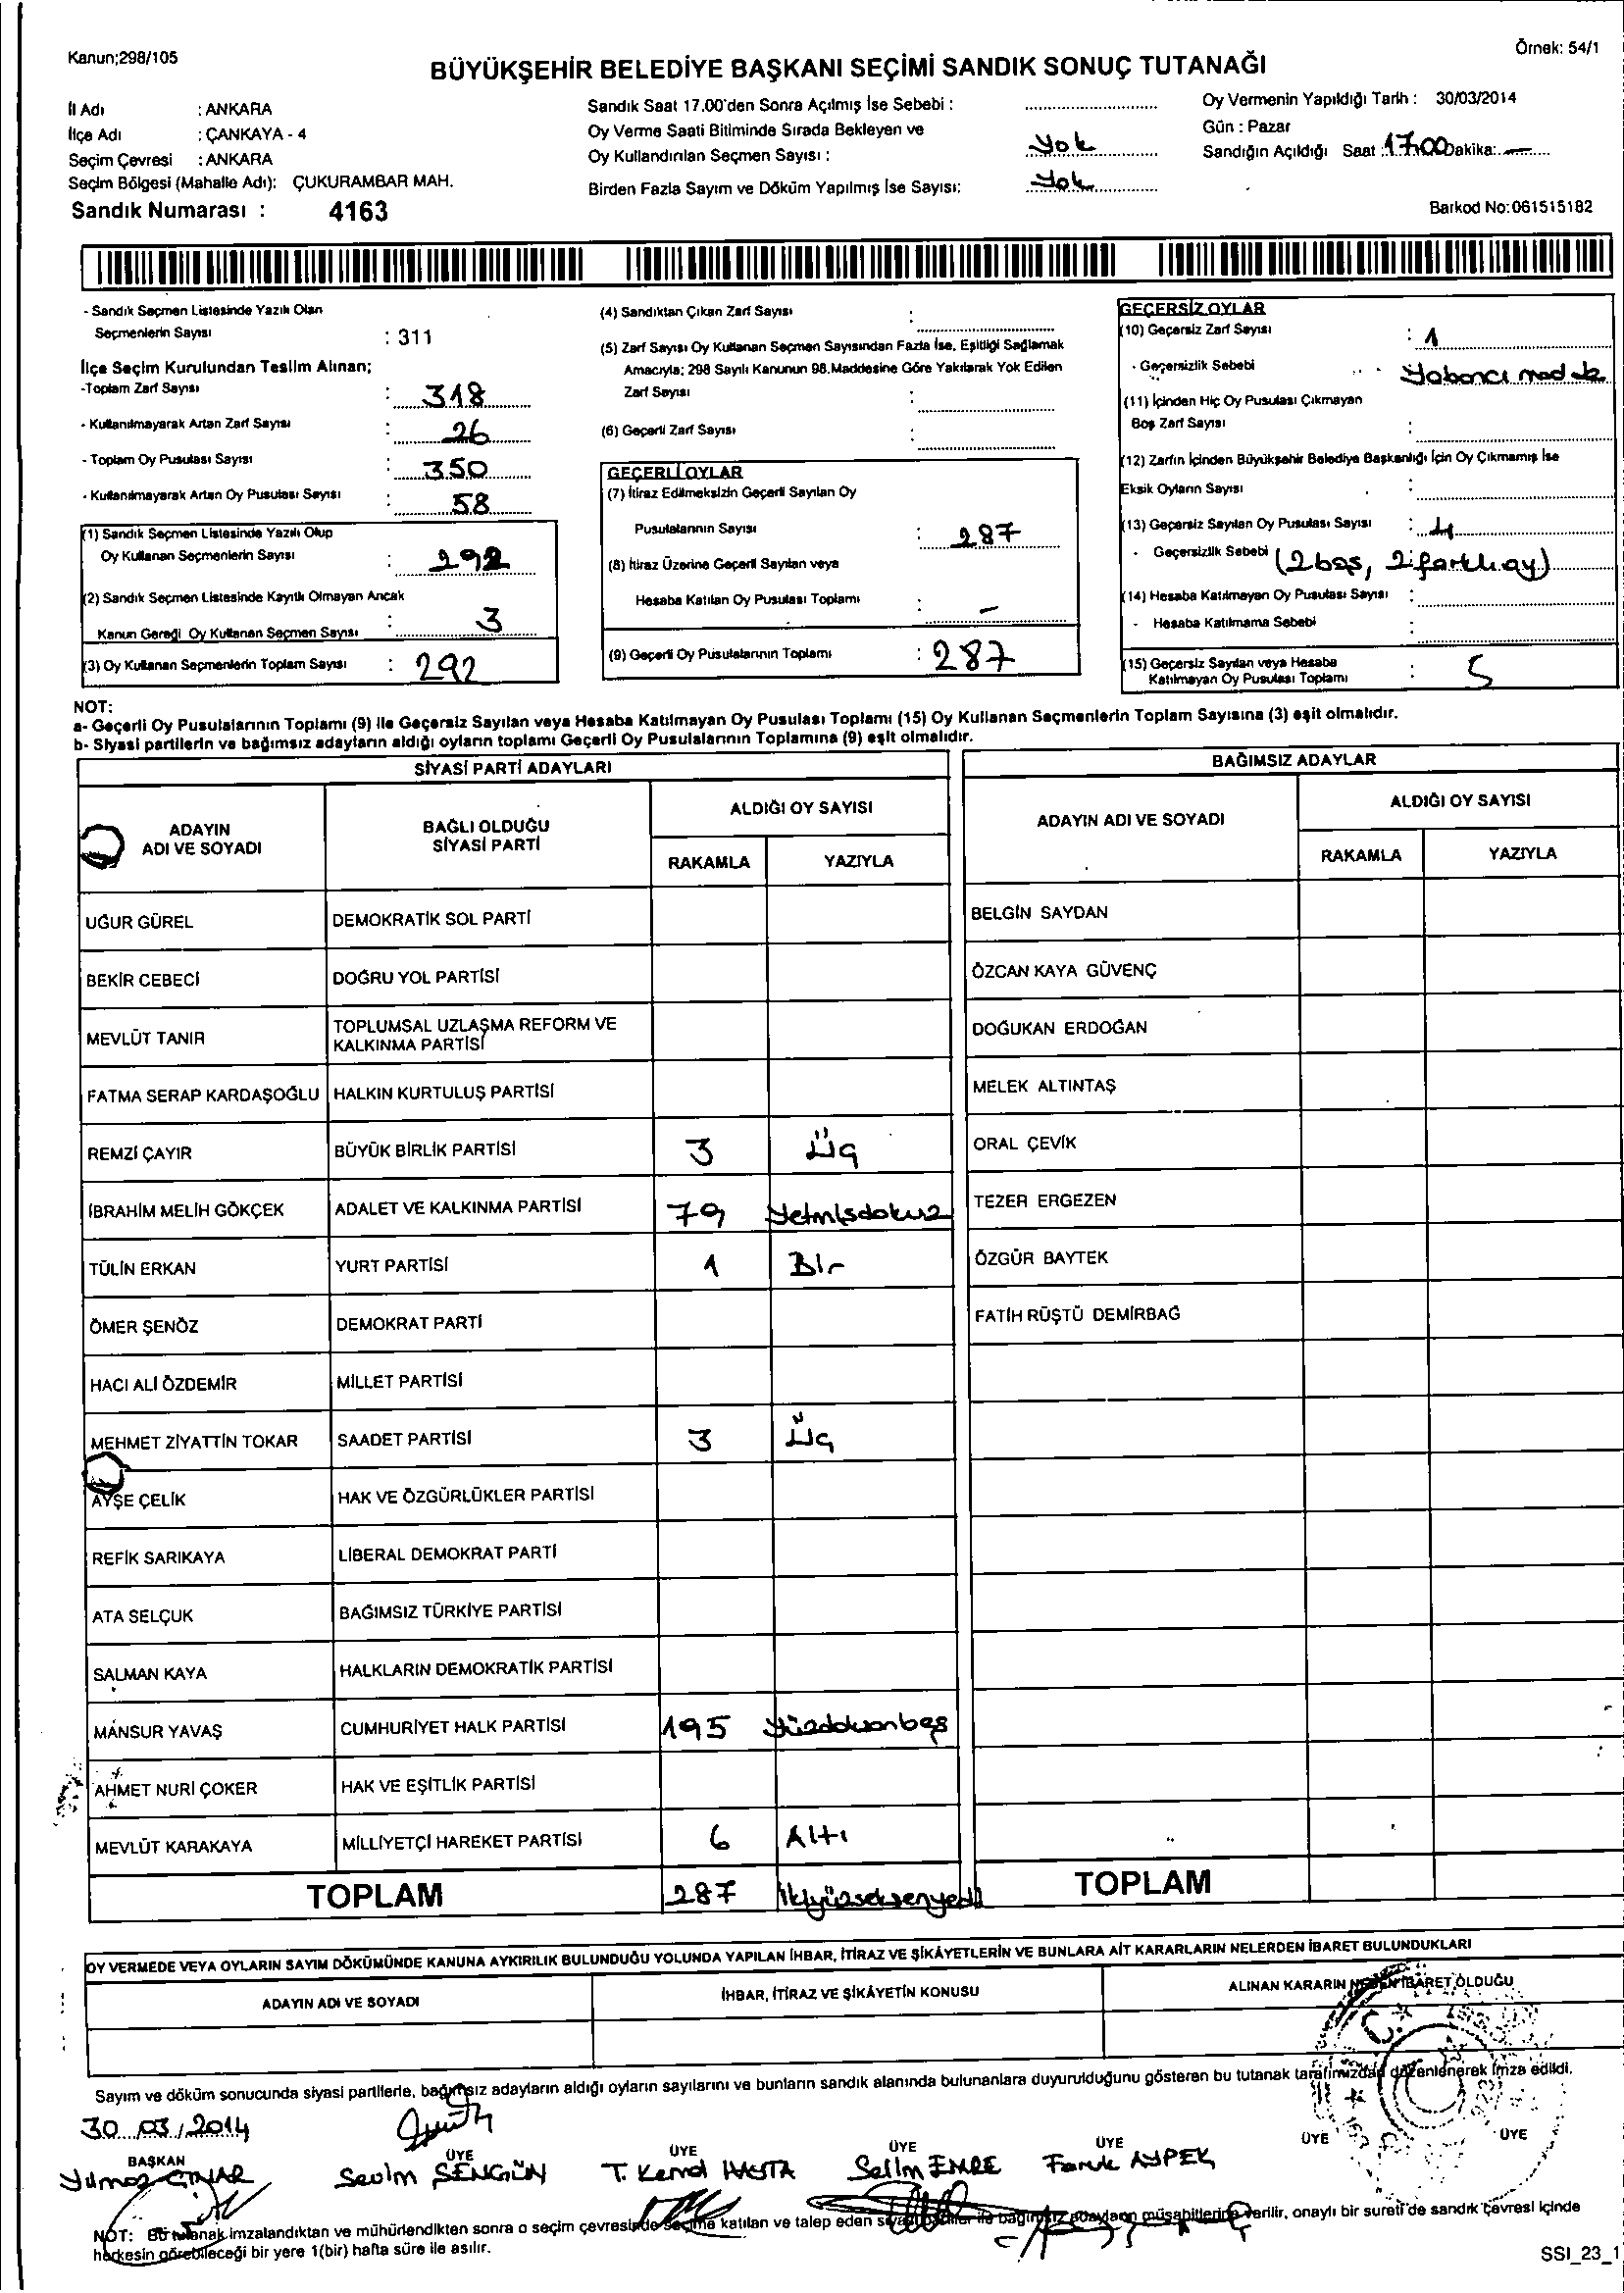 Kanun;298/105
Örnek: 54/1
BÜYÜKŞEHİR BELEDİYE BAŞKANI SEÇİMİ SANDIK SONUÇ TUTANAĞI
İl Adı : ANKARA
İlçe Adı : ÇANKAYA - 4
Seçim Çevresi : ANKARA
Seçim Bölgesi (Mahalle Adı): ÇUKURAMBAR MAH.
Sandık Numarası : 4163
Sandık Saat 17.00'den Sonra Açılmış İse Sebebi :
Oy Verme Saati Bitiminde Sırada Bekleyen ve
Oy Kullandırılan Seçmen Sayısı : Yok
Birden Fazla Sayım ve Döküm Yapılmış İse Sayısı: Yok
Oy Vermenin Yapıldığı Tarih : 30/03/2014
Gün : Pazar
Sandığın Açıldığı Saat : 17.00 Dakika: —
Barkod No:061515182
- Sandık Seçmen Listesinde Yazılı Olan
Seçmenlerin Sayısı : 311
İlçe Seçim Kurulundan Teslim Alınan;
-Toplam Zarf Sayısı : 318
- Kullanılmayarak Artan Zarf Sayısı : 26
- Toplam Oy Pusulası Sayısı : 350
- Kullanılmayarak Artan Oy Pusulası Sayısı : 58
(1) Sandık Seçmen Listesinde Yazılı Olup
Oy Kullanan Seçmenlerin Sayısı : 292
(2) Sandık Seçmen Listesinde Kayıtlı Olmayan Ancak
Kanun Gereği Oy Kullanan Seçmen Sayısı : 3
(3) Oy Kullanan Seçmenlerin Toplam Sayısı : 292
(4) Sandıktan Çıkan Zarf Sayısı :
(5) Zarf Sayısı Oy Kullanan Seçmen Sayısından Fazla İse, Eşitliği Sağlamak
Amacıyla; 298 Sayılı Kanunun 98.Maddesine Göre Yakılarak Yok Edilen
Zarf Sayısı :
(6) Geçerli Zarf Sayısı :
GEÇERLİ OYLAR
(7) İtiraz Edilmeksizin Geçerli Sayılan Oy
Pusulalarının Sayısı : 287
(8) İtiraz Üzerine Geçerli Sayılan veya
Hesaba Katılan Oy Pusulası Toplamı : -
(9) Geçerli Oy Pusulalarının Toplamı : 287
GEÇERSİZ OYLAR
(10) Geçersiz Zarf Sayısı : 1
- Geçersizlik Sebebi Yabancı madde
(11) İçinden Hiç Oy Pusulası Çıkmayan
Boş Zarf Sayısı :
(12) Zarfın İçinden Büyükşehir Belediye Başkanlığı İçin Oy Çıkmamış İse
Eksik Oyların Sayısı :
(13) Geçersiz Sayılan Oy Pusulası Sayısı : 4
- Geçersizlik Sebebi (2 boş, 2 farklı oy)
(14) Hesaba Katılmayan Oy Pusulası Sayısı :
- Hesaba Katılmama Sebebi :
(15) Geçersiz Sayılan veya Hesaba
Katılmayan Oy Pusulası Toplamı : 5
NOT:
a- Geçerli Oy Pusulalarının Toplamı (9) ile Geçersiz Sayılan veya Hesaba Katılmayan Oy Pusulası Toplamı (15) Oy Kullanan Seçmenlerin Toplam Sayısına (3) eşit olmalıdır.
b- Siyasi partilerin ve bağımsız adayların aldığı oyların toplamı Geçerli Oy Pusulalarının Toplamına (9) eşit olmalıdır.
SİYASİ PARTİ ADAYLARI
ADAYIN ADI VE SOYADI
BAĞLI OLDUĞU SİYASİ PARTİ
ALDIĞI OY SAYISI
RAKAMLA YAZIYLA
UĞUR GÜREL DEMOKRATİK SOL PARTİ
BEKİR CEBECİ DOĞRU YOL PARTİSİ
MEVLÜT TANIR TOPLUMSAL UZLAŞMA REFORM VE
KALKINMA PARTİSİ
FATMA SERAP KARDAŞOĞLU HALKIN KURTULUŞ PARTİSİ
REMZİ ÇAYIR BÜYÜK BİRLİK PARTİSİ 3 Üç
İBRAHİM MELİH GÖKÇEK ADALET VE KALKINMA PARTİSİ 79 Yetmişdokuz
TÜLİN ERKAN YURT PARTİSİ 1 Bir
ÖMER ŞENÖZ DEMOKRAT PARTİ
HACI ALİ ÖZDEMİR MİLLET PARTİSİ
MEHMET ZİYATTİN TOKAR SAADET PARTİSİ 3 Üç
AYŞE ÇELİK HAK VE ÖZGÜRLÜKLER PARTİSİ
REFİK SARIKAYA LİBERAL DEMOKRAT PARTİ
ATA SELÇUK BAĞIMSIZ TÜRKİYE PARTİSİ
SALMAN KAYA HALKLARIN DEMOKRATİK PARTİSİ
MANSUR YAVAŞ CUMHURİYET HALK PARTİSİ 195 Yüzdoksanbeş
AHMET NURİ ÇOKER HAK VE EŞİTLİK PARTİSİ
MEVLÜT KARAKAYA MİLLİYETÇİ HAREKET PARTİSİ 6 Altı
TOPLAM 287 İkiyüzseksenyedi
BAĞIMSIZ ADAYLAR
ADAYIN ADI VE SOYADI
ALDIĞI OY SAYISI
RAKAMLA YAZIYLA
BELGİN SAYDAN
ÖZCAN KAYA GÜVENÇ
DOĞUKAN ERDOĞAN
MELEK ALTINTAŞ
ORAL ÇEVİK
TEZER ERGEZEN
ÖZGÜR BAYTEK
FATİH RÜŞTÜ DEMİRBAĞ
TOPLAM
OY VERMEDE VEYA OYLARIN SAYIM DÖKÜMÜNDE KANUNA AYKIRILIK BULUNDUĞU YOLUNDA YAPILAN İHBAR, İTİRAZ VE ŞİKÂYETLERİN VE BUNLARA AİT KARARLARIN NELERDEN İBARET BULUNDUKLARI
ADAYIN ADI VE SOYADI İHBAR, İTİRAZ VE ŞİKÂYETİN KONUSU ALINAN KARARIN NEDEN İBARET OLDUĞU
Sayım ve döküm sonucunda siyasi partilerle, bağımsız adayların aldığı oyların sayılarını ve bunların sandık alanında bulunanlara duyurulduğunu gösteren bu tutanak tarafımızdan düzenlenerek imza edildi.
30.03.2014
BAŞKAN ÜYE ÜYE ÜYE ÜYE ÜYE ÜYE
Yılmaz ÇINAR Sevim ŞENGÜN T. Kemal HASTA Selim EMRE Faruk AYPEK
NOT: Bu tutanak imzalandıktan ve mühürlendikten sonra o seçim çevresinde seçime katılan ve talep eden siyasi partiler ile bağımsız adayların müşahitlerine verilir, onaylı bir sureti de sandık çevresi içinde
herkesin görebileceği bir yere 1(bir) hafta süre ile asılır.
SSI_23_1